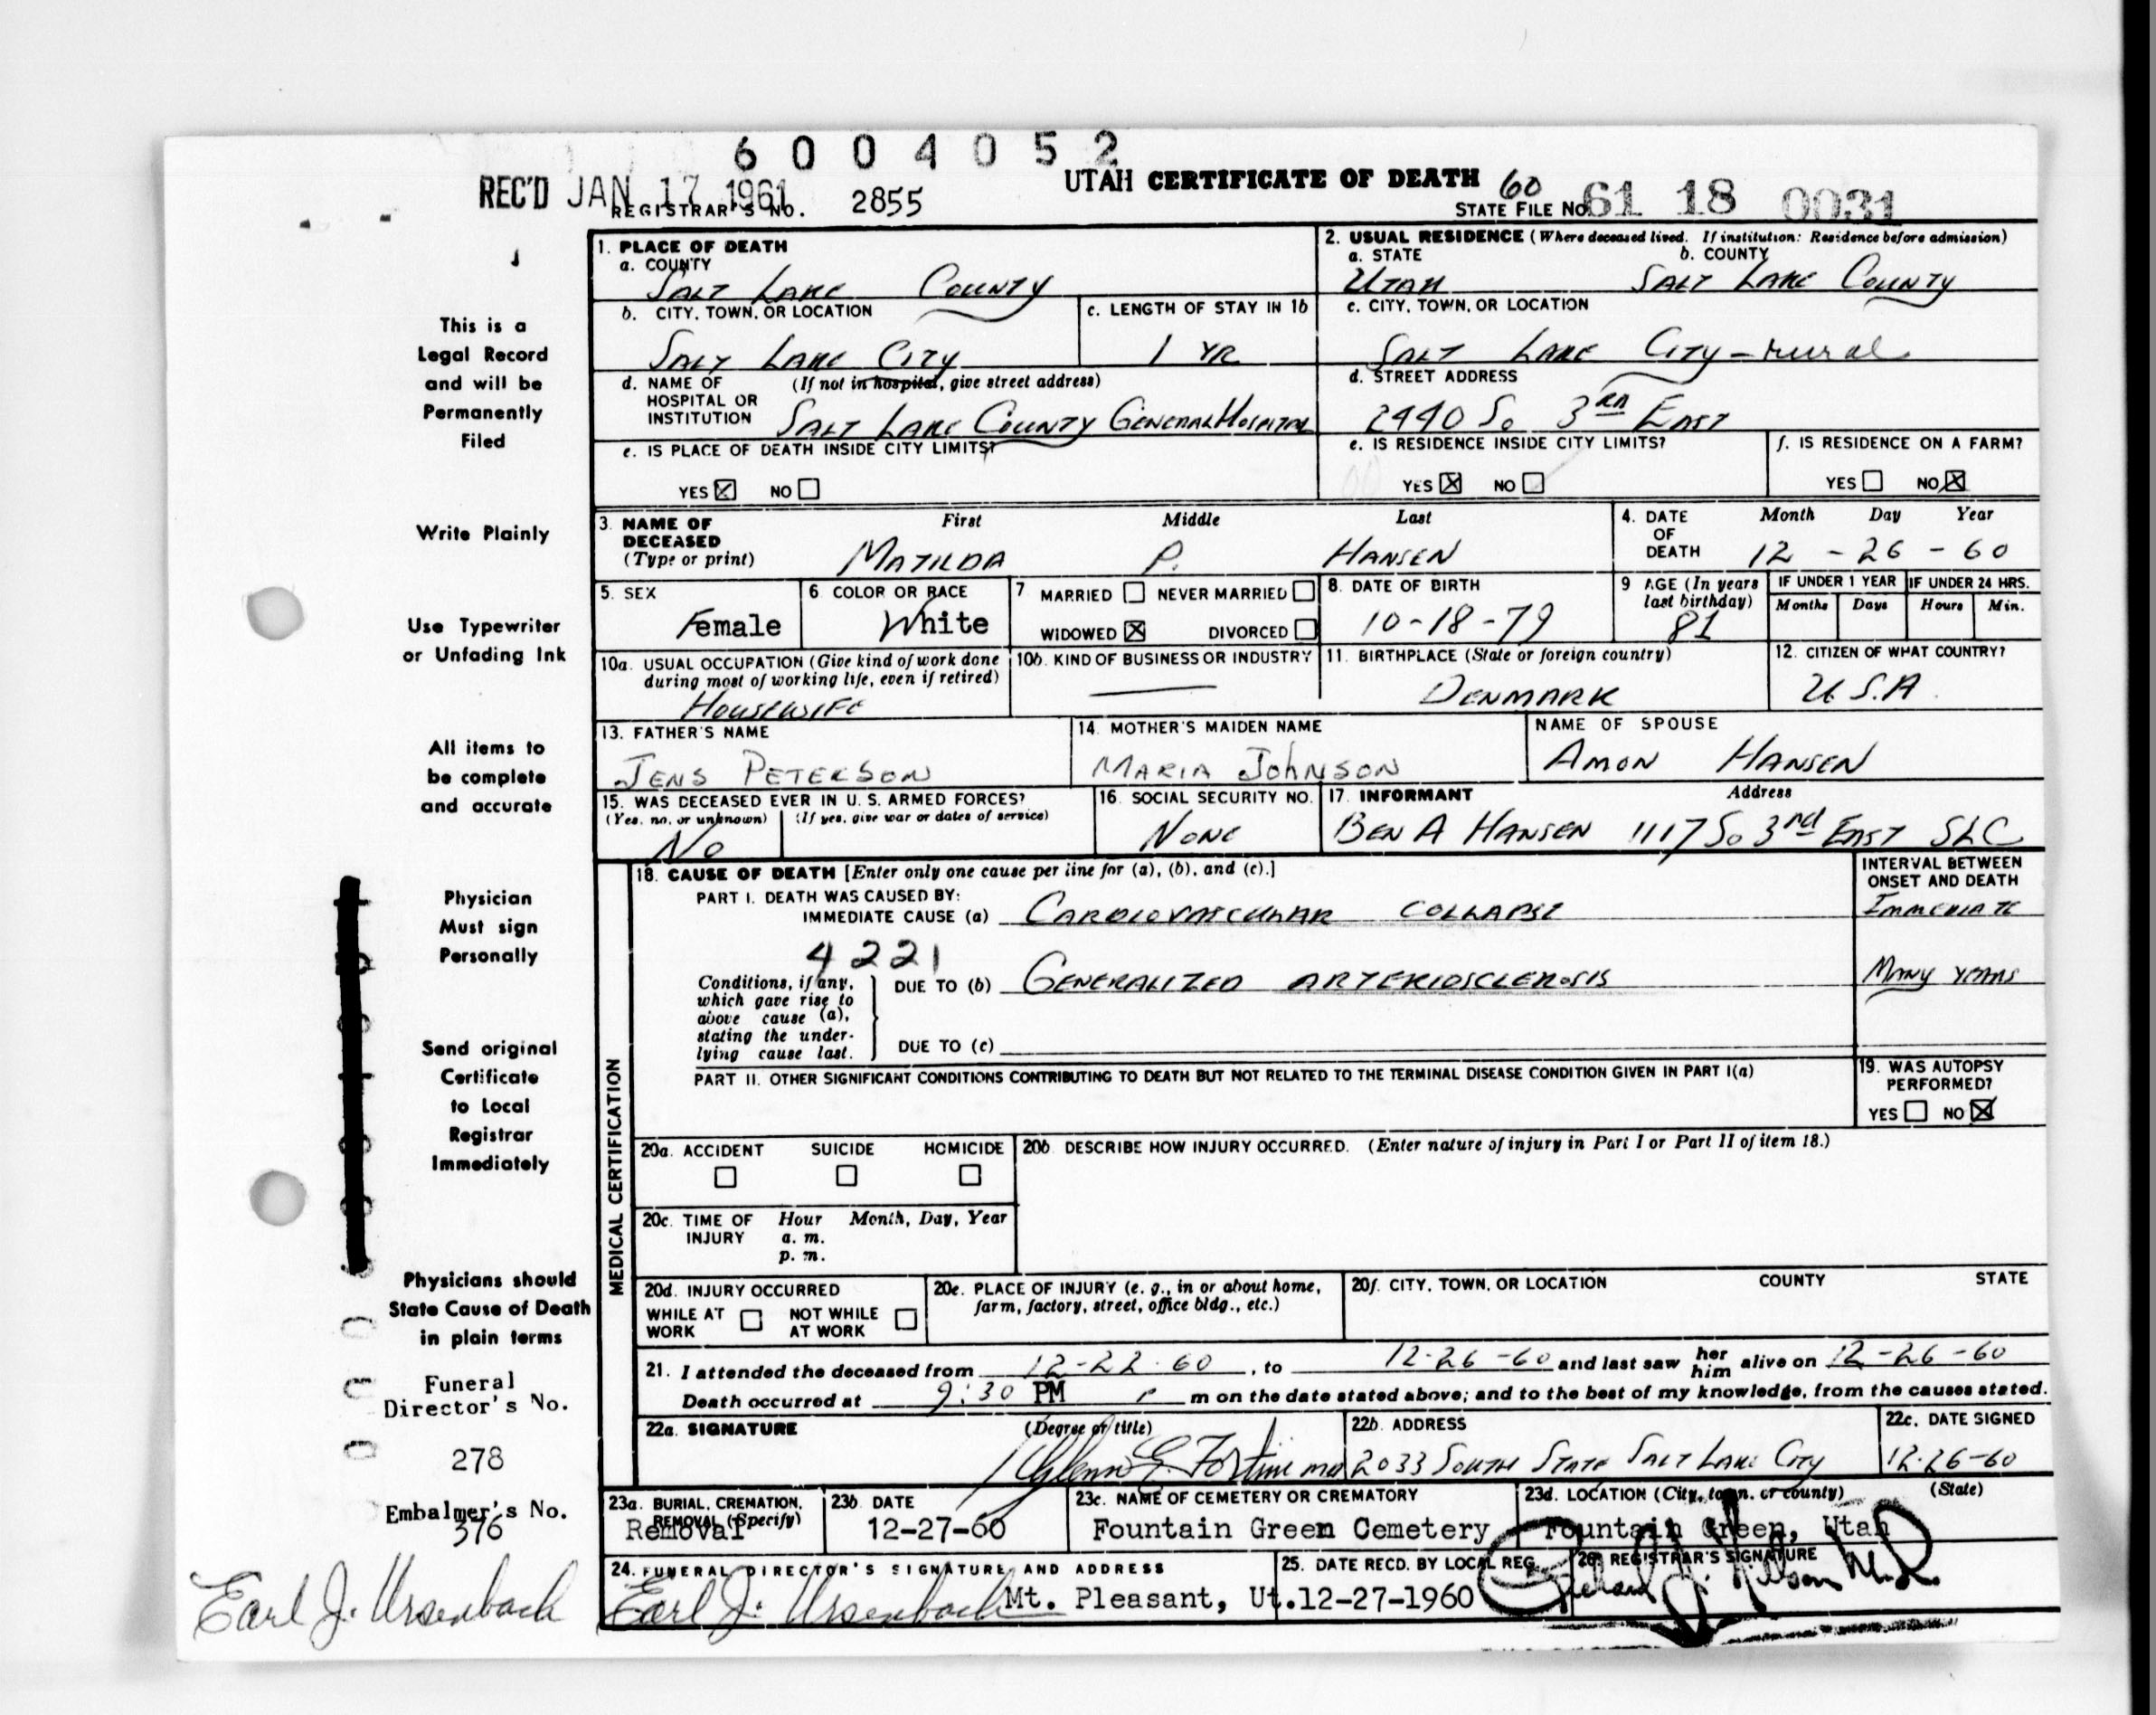 6 0 0 4 0 5 2
REC'D JAN 17 1961
REGISTRAR'S NO. 2855
UTAH CERTIFICATE OF DEATH
STATE FILE NO. 60 61 18 0031
This is a
Legal Record
and will be
Permanently
Filed
Write Plainly
Use Typewriter
or Unfading Ink
All items to
be complete
and accurate
Physician
Must sign
Personally
Send original
Certificate
to Local
Registrar
Immediately
Physicians should
State Cause of Death
in plain terms
Funeral
Director's No.
278
Embalmer's No.
376
Earl J. Ursenbach
1. PLACE OF DEATH
a. COUNTY
SALT LAKE COUNTY
b. CITY, TOWN, OR LOCATION
SALT LAKE CITY
c. LENGTH OF STAY IN 1b
1 YR
d. NAME OF HOSPITAL OR INSTITUTION (If not in hospital, give street address)
SALT LAKE COUNTY GENERAL HOSPITAL
e. IS PLACE OF DEATH INSIDE CITY LIMITS?
YES ☒ NO ☐
2. USUAL RESIDENCE (Where deceased lived. If institution: Residence before admission)
a. STATE
UTAH
b. COUNTY
SALT LAKE COUNTY
c. CITY, TOWN, OR LOCATION
SALT LAKE CITY - rural
d. STREET ADDRESS
2440 So 3RD EAST
e. IS RESIDENCE INSIDE CITY LIMITS?
YES ☒ NO ☐
f. IS RESIDENCE ON A FARM?
YES ☐ NO ☒
3. NAME OF DECEASED (Type or print)
First Middle Last
MATILDA P. HANSEN
4. DATE OF DEATH Month Day Year
12 - 26 - 60
5. SEX
Female
6 COLOR OR RACE
White
7 MARRIED ☐ NEVER MARRIED ☐
WIDOWED ☒ DIVORCED ☐
8. DATE OF BIRTH
10-18-79
9 AGE (In years last birthday)
81
IF UNDER 1 YEAR
Months Days
IF UNDER 24 HRS.
Hours Min.
10a. USUAL OCCUPATION (Give kind of work done during most of working life, even if retired)
HOUSEWIFE
10b. KIND OF BUSINESS OR INDUSTRY
11. BIRTHPLACE (State or foreign country)
DENMARK
12. CITIZEN OF WHAT COUNTRY?
U.S.A.
13. FATHER'S NAME
JENS PETERSON
14. MOTHER'S MAIDEN NAME
MARIA JOHNSON
NAME OF SPOUSE
AMON HANSEN
15. WAS DECEASED EVER IN U. S. ARMED FORCES?
(Yes, no, or unknown) (If yes, give war or dates of service)
No
16. SOCIAL SECURITY NO.
NONE
17. INFORMANT Address
BEN A HANSEN 1117 So 3rd EAST SLC
MEDICAL CERTIFICATION
18. CAUSE OF DEATH [Enter only one cause per line for (a), (b), and (c).]
INTERVAL BETWEEN ONSET AND DEATH
PART I. DEATH WAS CAUSED BY:
IMMEDIATE CAUSE (a) CARDIOVASCULAR COLLAPSE
IMMEDIATE
4221
Conditions, if any, which gave rise to above cause (a), stating the underlying cause last.
DUE TO (b) GENERALIZED ARTERIOSCLEROSIS
MANY YEARS
DUE TO (c)
PART II. OTHER SIGNIFICANT CONDITIONS CONTRIBUTING TO DEATH BUT NOT RELATED TO THE TERMINAL DISEASE CONDITION GIVEN IN PART I(a)
19. WAS AUTOPSY PERFORMED?
YES ☐ NO ☒
20a. ACCIDENT SUICIDE HOMICIDE
20b DESCRIBE HOW INJURY OCCURRED. (Enter nature of injury in Part I or Part II of item 18.)
20c. TIME OF INJURY Hour Month, Day, Year
a. m.
p. m.
20d. INJURY OCCURRED
WHILE AT WORK ☐ NOT WHILE AT WORK ☐
20e. PLACE OF INJURY (e. g., in or about home, farm, factory, street, office bldg., etc.)
20f. CITY, TOWN, OR LOCATION COUNTY STATE
21. I attended the deceased from 12-22-60, to 12-26-60 and last saw her him alive on 12-26-60
Death occurred at 9:30 PM m on the date stated above; and to the best of my knowledge, from the causes stated.
22a. SIGNATURE (Degree or title)
Glenn E. md
22b. ADDRESS
2033 SOUTH STATE SALT LAKE CITY
22c. DATE SIGNED
12-26-60
23a. BURIAL, CREMATION, REMOVAL (Specify)
Removal
23b DATE
12-27-60
23c. NAME OF CEMETERY OR CREMATORY
Fountain Green Cemetery
23d. LOCATION (City, town, or county) (State)
Fountain Green, Utah
24. FUNERAL DIRECTOR'S SIGNATURE AND ADDRESS
Earl J. Ursenbach Mt. Pleasant, Ut.
25. DATE RECD. BY LOCAL REG.
12-27-1960
26. REGISTRAR'S SIGNATURE
M.D.